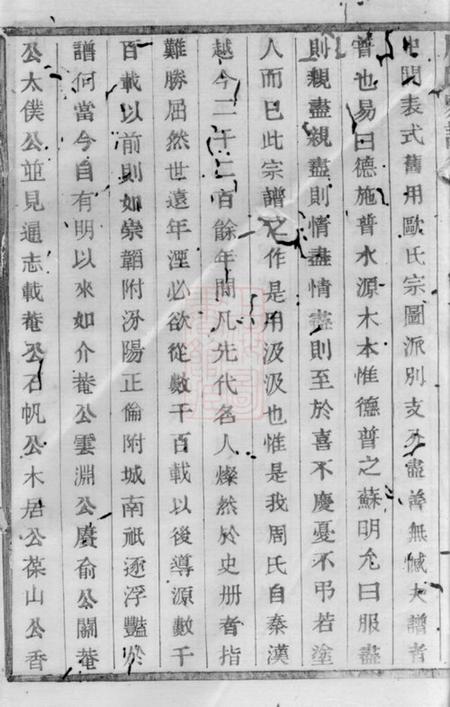 史間表式舊用歐氏宗圖派別支分盡善無憾夫譜者
普也易曰德施普水源木本惟德普之蘇明允曰服盡
則親盡親盡則情盡情盡則至於喜不慶憂不弔若塗
人而已此宗譜之作是用汲汲也惟是我周氏自秦漢
越今二千二百餘年間凡先代名人燦然於史册者指
難勝屈然世遠年湮必欲從數千百載以後導源數千
百載以前則如崇韜附汾陽正倫附城南祇逐浮豔於
譜何當今自有明以來如介菴公雲淵公賡俞公關菴
公太僕公並見通志載菴公石帆公木居公葆山公香